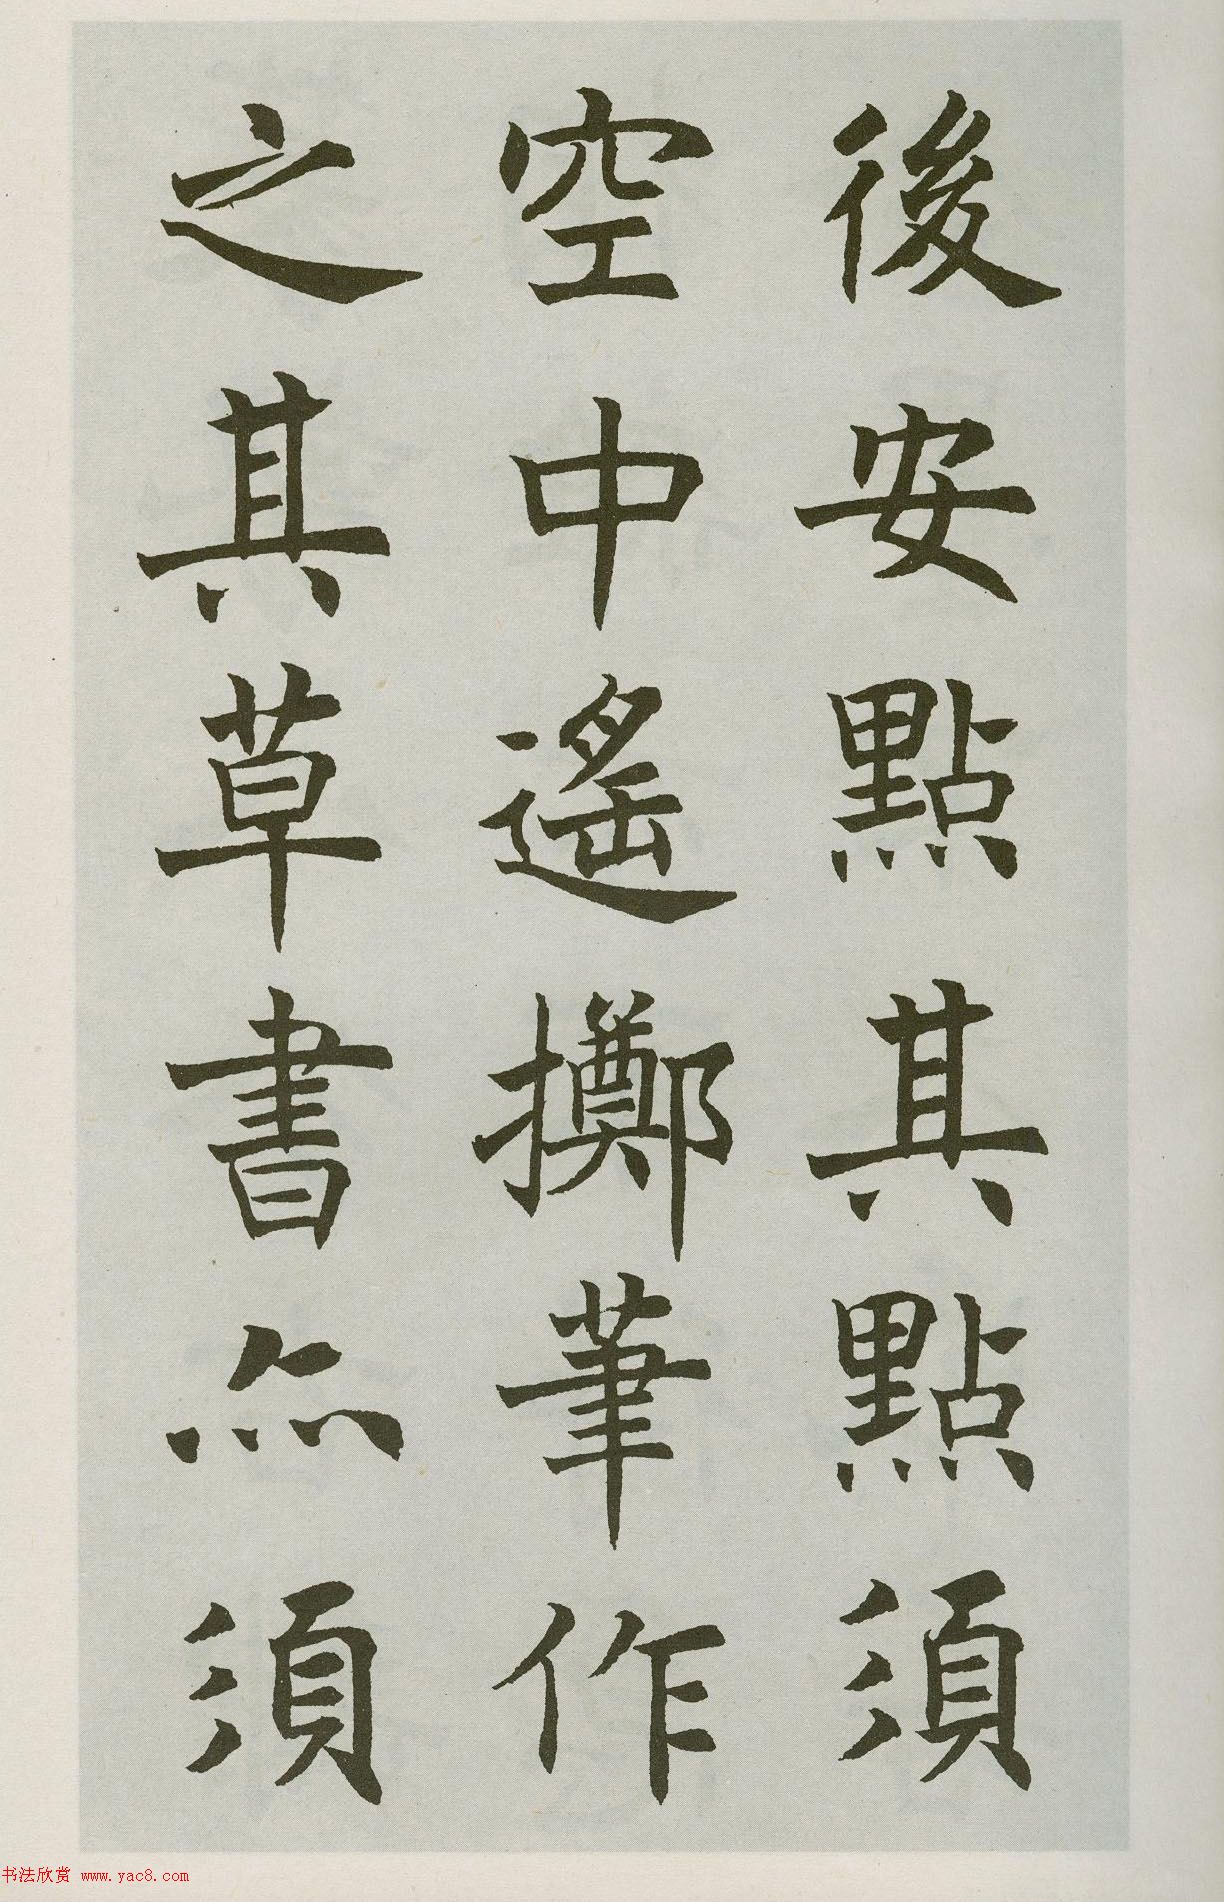 後安點其點須
空中遙擲筆作
之其草書亦須
书法欣赏 www.yac8.com